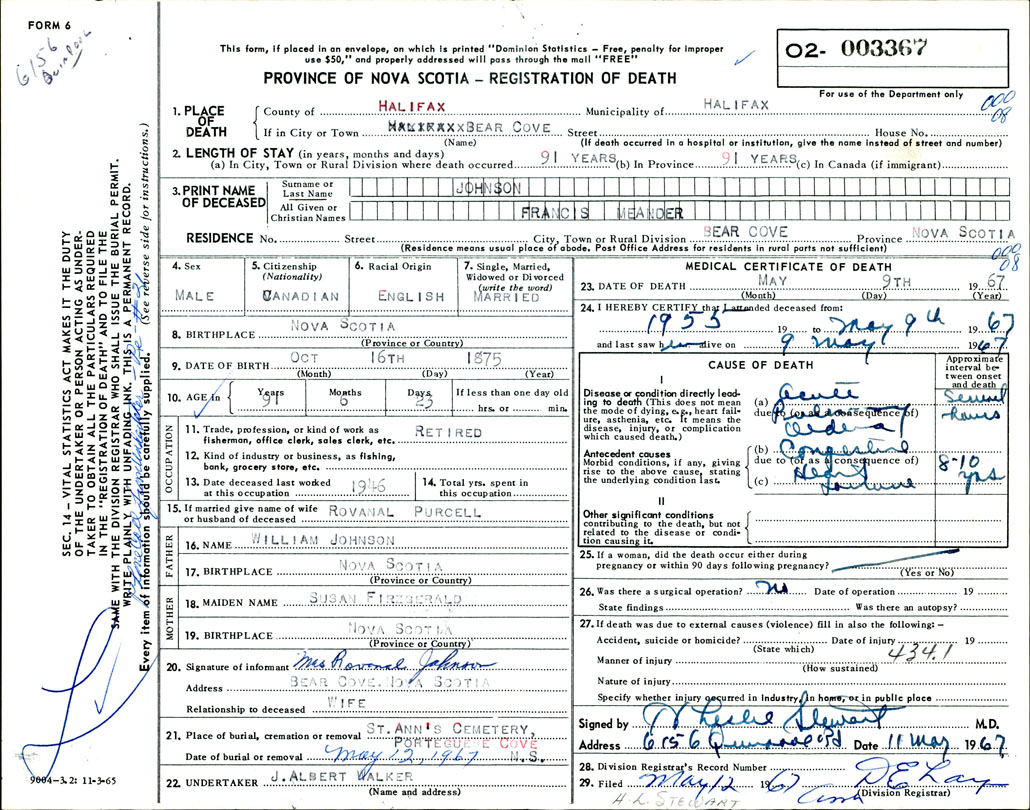 FORM 6
6156
This form, if placed in an envelope, on which is printed "Dominion Statistics – Free, penalty for improper
use $50," and properly addressed will pass through the mail "FREE"
PROVINCE OF NOVA SCOTIA – REGISTRATION OF DEATH
02- 003367
For use of the Department only
000
08
1. PLACE OF DEATH
County of HALIFAX Municipality of HALIFAX
If in City or Town HALIFAXX BEAR COVE Street House No.
(Name) (If death occurred in a hospital or institution, give the name instead of street and number)
2. LENGTH OF STAY (in years, months and days)
(a) In City, Town or Rural Division where death occurred 91 YEARS (b) In Province 91 YEARS (c) In Canada (if immigrant)
3. PRINT NAME OF DECEASED
Surname or Last Name JOHNSON
All Given or Christian Names FRANCIS MEANDER
RESIDENCE No. Street City, Town or Rural Division BEAR COVE Province NOVA SCOTIA
(Residence means usual place of abode. Post Office Address for residents in rural parts not sufficient)
000
08
4. Sex
MALE
5. Citizenship
(Nationality)
CANADIAN
6. Racial Origin
ENGLISH
7. Single, Married,
Widowed or Divorced
(write the word)
MARRIED
8. BIRTHPLACE NOVA SCOTIA
(Province or Country)
9. DATE OF BIRTH OCT 16TH 1875
(Month) (Day) (Year)
10. AGE in Years 91 Months 6 Days 23 If less than one day old
hrs. or min.
OCCUPATION
11. Trade, profession, or kind of work as RETIRED
fisherman, office clerk, sales clerk, etc.
12. Kind of industry or business, as fishing,
bank, grocery store, etc.
13. Date deceased last worked
at this occupation 1946
14. Total yrs. spent in
this occupation
15. If married give name of wife
or husband of deceased ROVANAL PURCELL
FATHER
16. NAME WILLIAM JOHNSON
17. BIRTHPLACE NOVA SCOTIA
(Province or Country)
MOTHER
18. MAIDEN NAME SUSAN FITZGERALD
19. BIRTHPLACE NOVA SCOTIA
(Province or Country)
20. Signature of informant Mrs Rovanal Johnson
Address BEAR COVE, NOVA SCOTIA
Relationship to deceased WIFE
21. Place of burial, cremation or removal ST. ANN'S CEMETERY,
PORTEGUESE COVE
Date of burial or removal May 12, 1967 N.S.
22. UNDERTAKER J. ALBERT WALKER
(Name and address)
MEDICAL CERTIFICATE OF DEATH
23. DATE OF DEATH MAY 9TH 1967
(Month) (Day) (Year)
24. I HEREBY CERTIFY that I attended deceased from:
1955 19 to May 9th 1967
and last saw him alive on 9 May 1967
CAUSE OF DEATH
Approximate
interval between
onset
and death
I
Disease or condition directly leading
to death (This does not mean
the mode of dying, e.g., heart failure,
asthenia, etc. It means the
disease, injury, or complication
which caused death.)
(a) Acute
due to (or as a consequence of)
Pulmonary
Oedema
Several
hours
Antecedent causes
Morbid conditions, if any, giving
rise to the above cause, stating
the underlying condition last.
(b) Congestive
due to (or as a consequence of)
(c) Heart
failure
8-10
yrs
II
Other significant conditions
contributing to the death, but not
related to the disease or condition
causing it.
25. If a woman, did the death occur either during
pregnancy or within 90 days following pregnancy?
(Yes or No)
26. Was there a surgical operation? no Date of operation 19
State findings Was there an autopsy?
27. If death was due to external causes (violence) fill in also the following: –
Accident, suicide or homicide? Date of injury 19
(State which) 434.1
Manner of injury
(How sustained)
Nature of injury
Specify whether injury occurred in Industry, in home, or in public place
Signed by H Leslie Stewart M.D.
Address 6156 Quinpool Rd Date 11 May 1967
28. Division Registrar's Record Number
29. Filed May 12 1967 D E Lay
(Division Registrar)
H. L. STEWART
9004-3.2: 11-3-65
SEC. 14 – VITAL STATISTICS ACT MAKES IT THE DUTY
OF THE UNDERTAKER OR PERSON ACTING AS UNDER-
TAKER TO OBTAIN ALL THE PARTICULARS REQUIRED
IN THE "REGISTRATION OF DEATH" AND TO FILE THE
SAME WITH THE DIVISION REGISTRAR WHO SHALL ISSUE THE BURIAL PERMIT.
WRITE PLAINLY, WITH UNFADING INK. THIS IS A PERMANENT RECORD.
Every item of information should be carefully supplied. (See reverse side for instructions.)